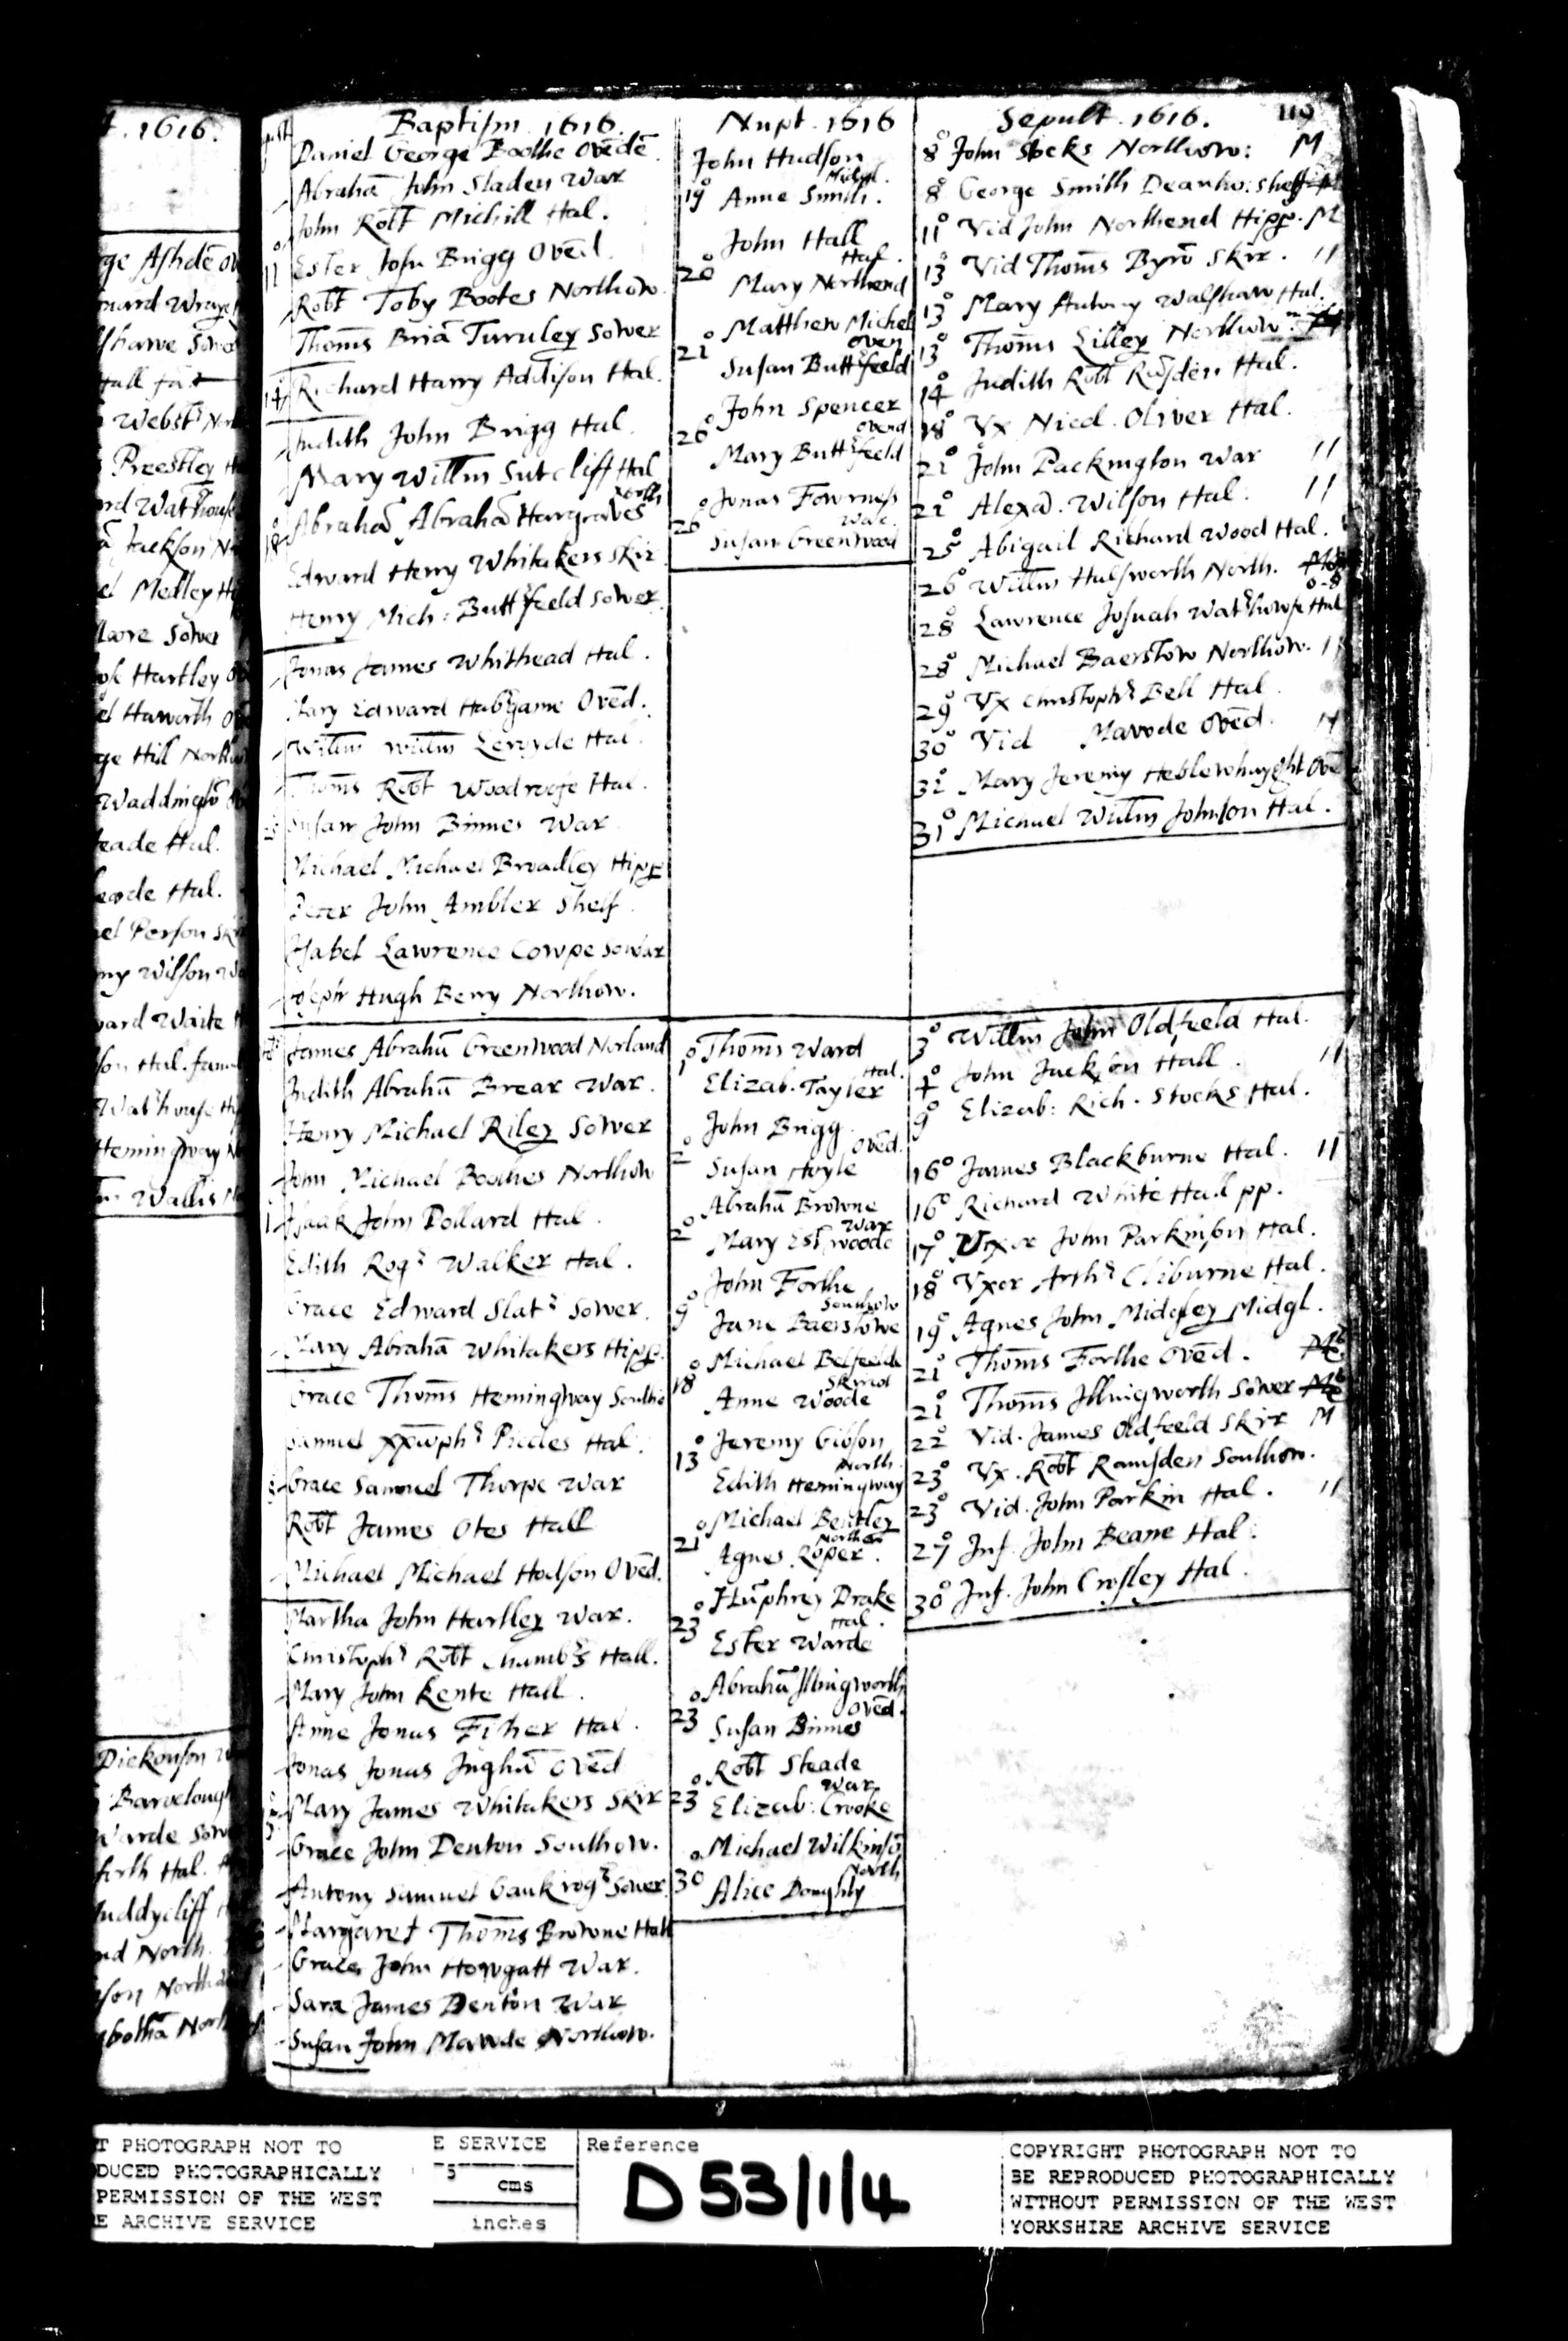 . 1616.
ge Ashdē
nard
shawe
Webst
Preestley
ard Wathouse
Jackson
Medley
Sower
Hartley
Haworth
ge Hill
Waddingtō
eade Hal.
Hal.
el Person
my Wilson
ward Waite
son Hal.
Wathouse
Hemingway
Wallis
Dickonson
Baroclough
Warde
forth Hal.
uddycliff
nd North.
son North
bothā
Baptism. 1616.
Daniel George Boothe Ovēdē.
Abrahā John Sladen War
John Robt Michill Hal.
11 Ester John Brigg Ovēd.
Robt Toby Bootes Northow.
Thoms Briā Turnley Sower
14 Richard Harry Addison Hal.
Judith John Brigg Hal.
Mary Willm Sutcliff Hal
North
18 Abrahā Abrahā Hargraves
Edward Henry Whitakers Skir
Henry Mich: Buttfeeld Sower.
Jonas James Whithead Hal.
Mary Edward Habgame Ovēd.
Willm Willm Leroyde Hal.
Thoms Robt Woodroofe Hal.
Susan John Binnes War
Michael Michael Broadley Hipp
Peter John Ambler Shelf.
Isabel Lawrence Cowpe Sowar
Joseph Hugh Berry Northow.
James Abrahā Greenwood Norland
Judith Abrahā Brear War.
Henry Michael Riley Sower
John Michael Boothes Northow
Isaak John Pollard Hal.
Edith Rog Walker Hal.
Grace Edward Slat Sower.
Mary Abrahā Whitakers Hipp.
Grace Thoms Hemingway
Samuel Pickles Hal.
Grace Samuel Thorpe War
Robt James Otes Hall
Michael Michael Hodson Ovēd.
Martha John Hartley War.
Christoph Robt Hall.
Mary John Kente Hall.
Anne Jonas Fisher Hal.
Jonas Jonas Inghā Ovēd
Mary James Whitakers Skir
Grace John Denton Southow.
Antony Samuel Gaukrog Sower
Margaret Thoms Browne Hall
Grace John Howgatt War.
Sara James Denton War
Susan John Mawde Northow.
Nupt. 1616
John Hudson
19° Anne Smith.
John Hall
Hal.
20° Mary Northend
Matthew Michel
Oven
21° Susan Buttfeeld
John Spencer
Ovend
26° Mary Buttfeeld
Jonas Fowrness
War.
26° Susan Greenwood
Thoms Ward
Hal.
1° Elizab. Tayler
John Brigg
Ovēd.
2° Susan Hoyle
Abrahā Browne
War
2° Mary Estwoode
John Forthe
Southow
9° Jane Baerstowe
Michael Belfeelde
Skircot
18° Anne Woode
Jeremy Gibson
North.
13° Edith Hemingway
Michael Bentley
21° Agnes Roper.
Hūphrey Drake
Hal.
23° Ester Warde
Abrahā Illingworth
Ovēd.
23° Susan Binnes
Robt Steade
War
23° Elizab: Crooke
Michael Wilkinsō
North
30° Alice Doughty
Sepult. 1616.
119
8° John Stocks Northow: M
8° George Smith
11° Vid John Northend Hipp. M
13° Vid Thoms Byrō Skir. 11
13° Mary Antony Walshaw Hal.
13° Thoms Lilley Northow
14° Judith Robt Rusden Hal.
18° Vx Nicd. Oliver Hal.
21° John Packington War 11
21° Alexd. Wilson Hal. 11
25° Abigail Richard Wood Hal.
26° Willm Halsworth North.
28° Lawrence Josuah Wathowse Hal
28° Michael Baerstow Northow. 11
29° Vx Christoph Bell Hal
30° Vid Mawde Ovēd.
31° Mary Jeremy Heblewhayght Ove
31° Michael Willm Johnson Hal.
3° Willm John Oldfeeld Hal.
4° John Jackson Hall. 11
9° Elizab: Rich. Stocks Hal.
16° James Blackburne Hal. 11
16° Richard White Hall pp.
17° Vxor John Parkinson Hal.
18° Vxor Arth Cliburne Hal.
19° Agnes John Midgley Midgl.
21° Thoms Forthe Ovēd.
21° Thoms Illingworth Sower
22° Vid. James Oldfeeld Skir M
23° Vx. Robt Ramsden Southow.
23° Vid. John Parkin Hal. 11
27° Inf. John Beane Hal.
30° Inf. John Crosley Hal.
T PHOTOGRAPH NOT TO
DUCED PHOTOGRAPHICALLY
PERMISSION OF THE WEST
E ARCHIVE SERVICE
E SERVICE
5
cms
inches
Reference
D53/1/4
COPYRIGHT PHOTOGRAPH NOT TO
BE REPRODUCED PHOTOGRAPHICALLY
WITHOUT PERMISSION OF THE WEST
YORKSHIRE ARCHIVE SERVICE